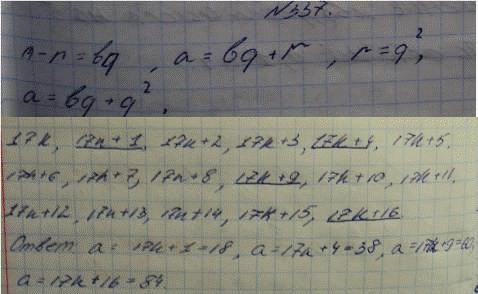 №337.
a-r=bq, a=bq+r, r=q²,
a=bq+q².
17n, 17n+1, 17n+2, 17n+3, 17n+4, 17n+5,
17n+6, 17n+7, 17n+8, 17n+9, 17n+10, 17n+11,
17n+12, 17n+13, 17n+14, 17n+15, 17n+16.
Ответ a= 17n+1=18, a=17n+4=38, a=17n+9=60,
a=17n+16=84.